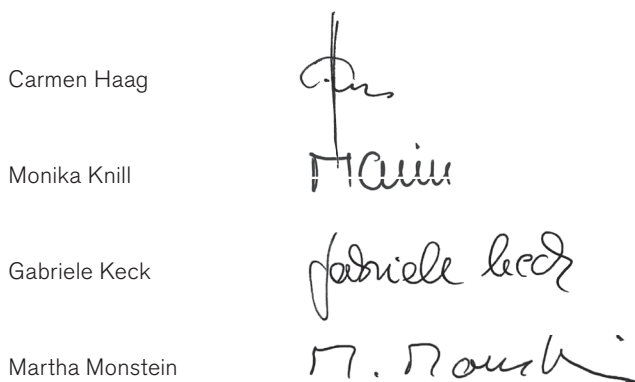 Carmen Haag
Monika Knill
Gabriele Keck Gabriele Keck
Martha Monstein M.